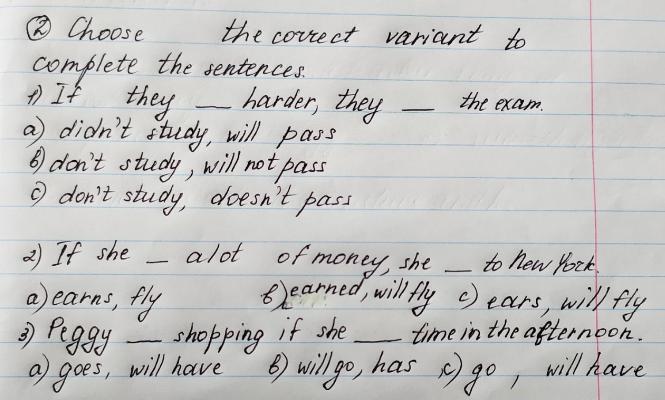 ② Choose the correct variant to
complete the sentences.
1) If they __ harder, they __ the exam.
a) didn't study, will pass
b) don't study, will not pass
c) don't study, doesn't pass
2) If she _ a lot of money, she _ to New York.
a) earns, fly b) earned, will fly c) ears, will fly
3) Peggy __ shopping if she __ time in the afternoon.
a) goes, will have b) will go, has c) go, will have